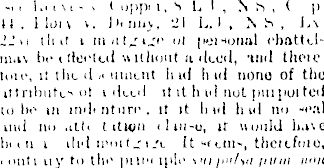 see Reeves v. Capper, 5 L J , N S , C p
44, Flory v. Denny, 21 L J , N S , Ex
223) that a mortgage of personal chattels
may be effected without a deed, and there
fore, if the document had had none of the
attributes of a deed if it had not purported
to be an indenture, if it had had no seal
and no attestation clause, it would have
been a valid mortgage It seems, therefore,
contrary to the principle